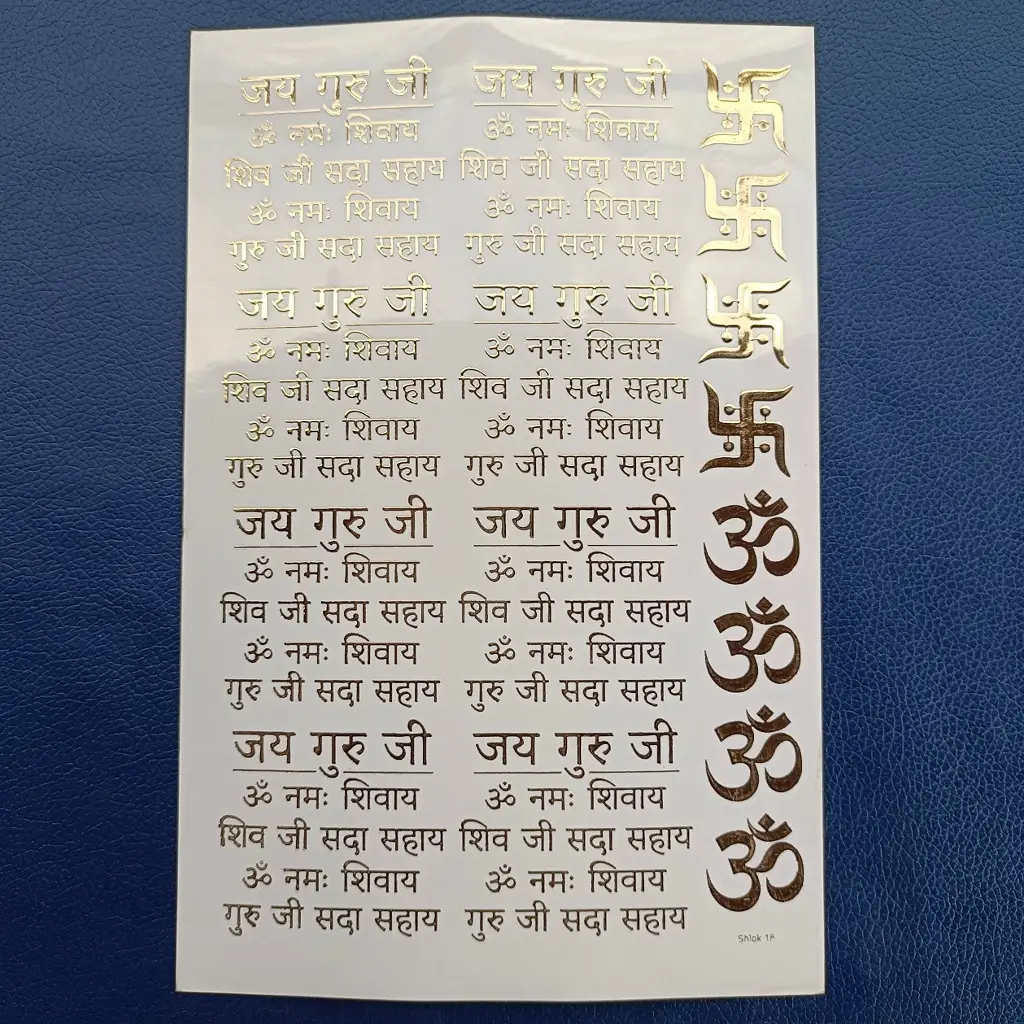 जय गुरु जी जय गुरु जी
ॐ नमः शिवाय ॐ नमः शिवाय
शिव जी सदा सहाय शिव जी सदा सहाय
ॐ नमः शिवाय ॐ नमः शिवाय
गुरु जी सदा सहाय गुरु जी सदा सहाय
जय गुरु जी जय गुरु जी
ॐ नमः शिवाय ॐ नमः शिवाय
शिव जी सदा सहाय शिव जी सदा सहाय
ॐ नमः शिवाय ॐ नमः शिवाय
गुरु जी सदा सहाय गुरु जी सदा सहाय
जय गुरु जी जय गुरु जी
ॐ नमः शिवाय ॐ नमः शिवाय
शिव जी सदा सहाय शिव जी सदा सहाय
ॐ नमः शिवाय ॐ नमः शिवाय
गुरु जी सदा सहाय गुरु जी सदा सहाय
जय गुरु जी जय गुरु जी
ॐ नमः शिवाय ॐ नमः शिवाय
शिव जी सदा सहाय शिव जी सदा सहाय
ॐ नमः शिवाय ॐ नमः शिवाय
गुरु जी सदा सहाय गुरु जी सदा सहाय
ॐ
ॐ
ॐ
ॐ
Shlok